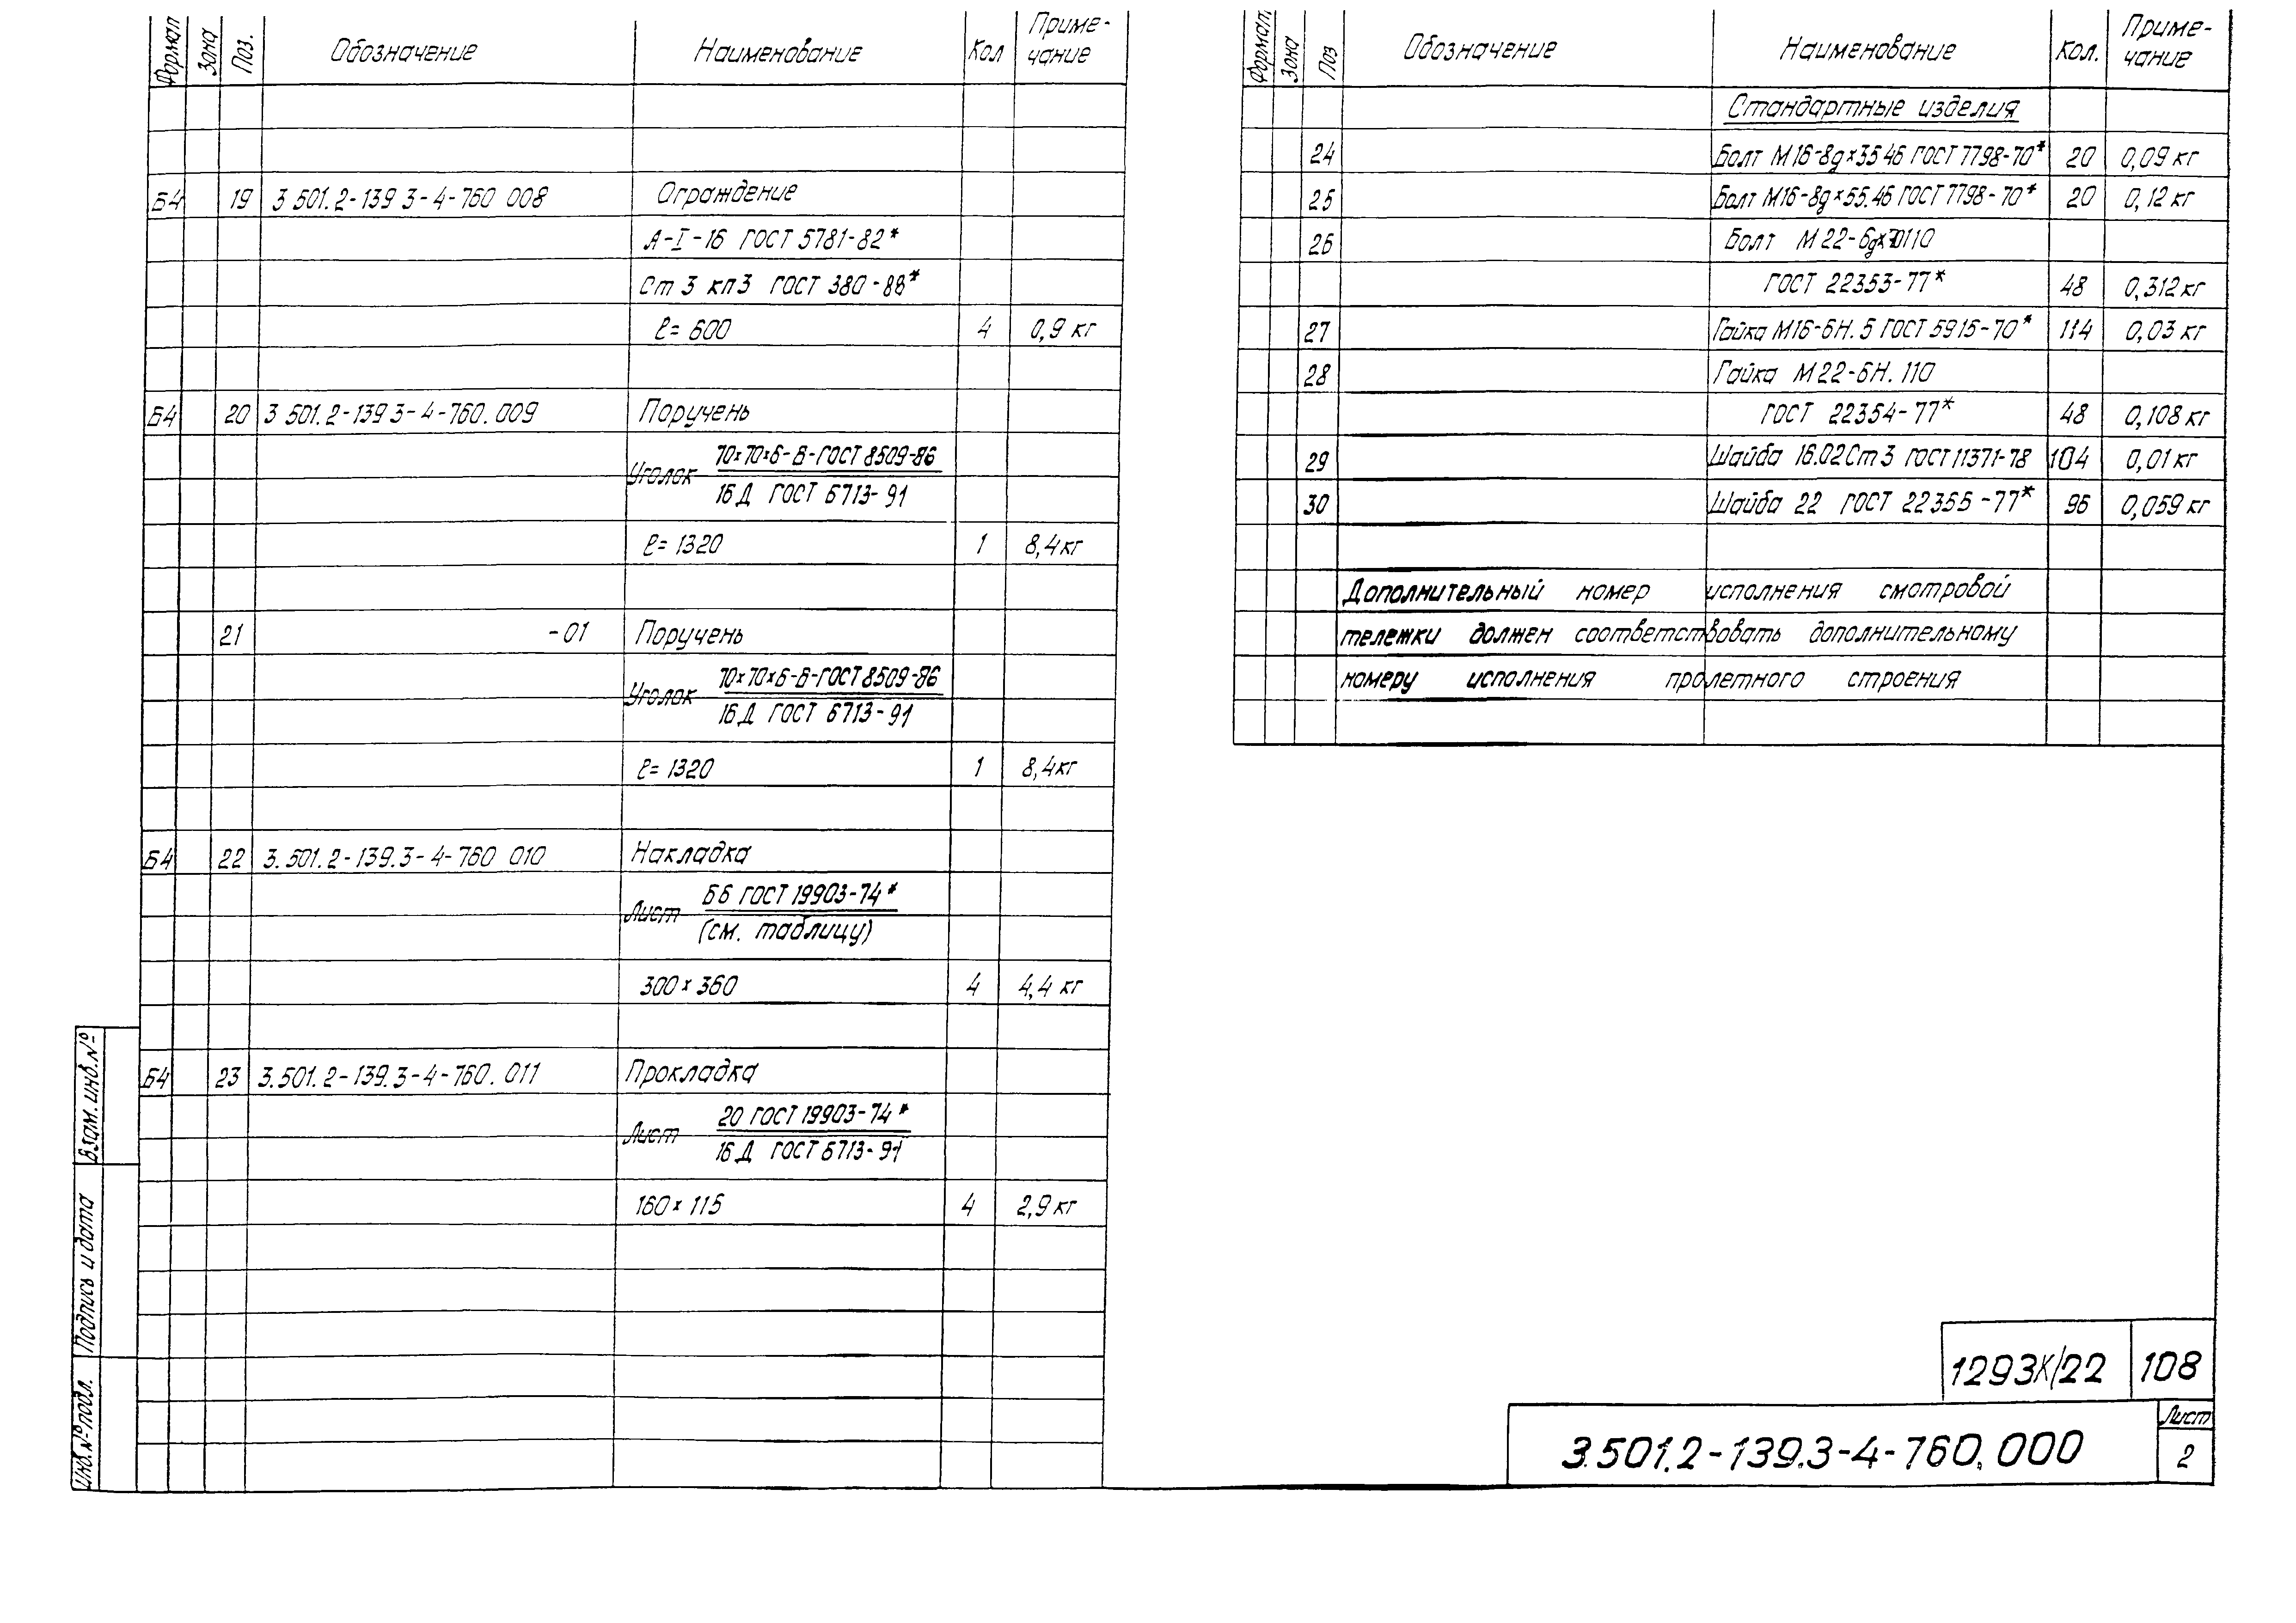 Формат Зона Поз. Обозначение Наименование Кол Приме-чание
Б4 19 3 501.2-139 3-4-760 008 Ограждение
А-I-16 ГОСТ 5781-82*
Ст 3 кп3 ГОСТ 380-88*
ℓ= 600 4 0,9 кг
Б4 20 3 501.2-139 3-4-760.009 Поручень
Уголок 70×70×6-В-ГОСТ 8509-86
16Д ГОСТ 6713-91
ℓ= 1320 1 8,4кг
21 -01 Поручень
Уголок 70×70×6-В-ГОСТ 8509-86
16Д ГОСТ 6713-91
ℓ= 1320 1 8,4кг
Б4 22 3.501.2-139.3-4-760 010 Накладка
Лист Б6 ГОСТ 19903-74*
(см. таблицу)
300×360 4 4,4 кг
Б4 23 3.501.2-139.3-4-760.011 Прокладка
Лист 20 ГОСТ 19903-74*
16Д ГОСТ 6713-91
160×115 4 2,9 кг
Взам. инв. №
Подпись и дата
Инв. № подл.
Формат Зона Поз Обозначение Наименование Кол. Приме-чание
Стандартные изделия
24 Болт М16-8g×35 46 ГОСТ 7798-70* 20 0,09 кг
25 Болт М16-8g×55.46 ГОСТ 7798-70* 20 0,12 кг
26 Болт М22-6g×
ГОСТ 22353-77* 48 0,312 кг
27 Гайка М16-6Н.5 ГОСТ 5915-70* 114 0,03 кг
28 Гайка М22-6Н.110
ГОСТ 22354-77* 48 0,108 кг
29 Шайба 16.02Ст3 ГОСТ 11371-78 104 0,01 кг
30 Шайба 22 ГОСТ 22355-77* 96 0,059 кг
Дополнительный номер исполнения смотровой
тележки должен соответствовать дополнительному
номеру исполнения пролетного строения
1293К/22 108
3.501.2-139.3-4-760.000
Лист
2